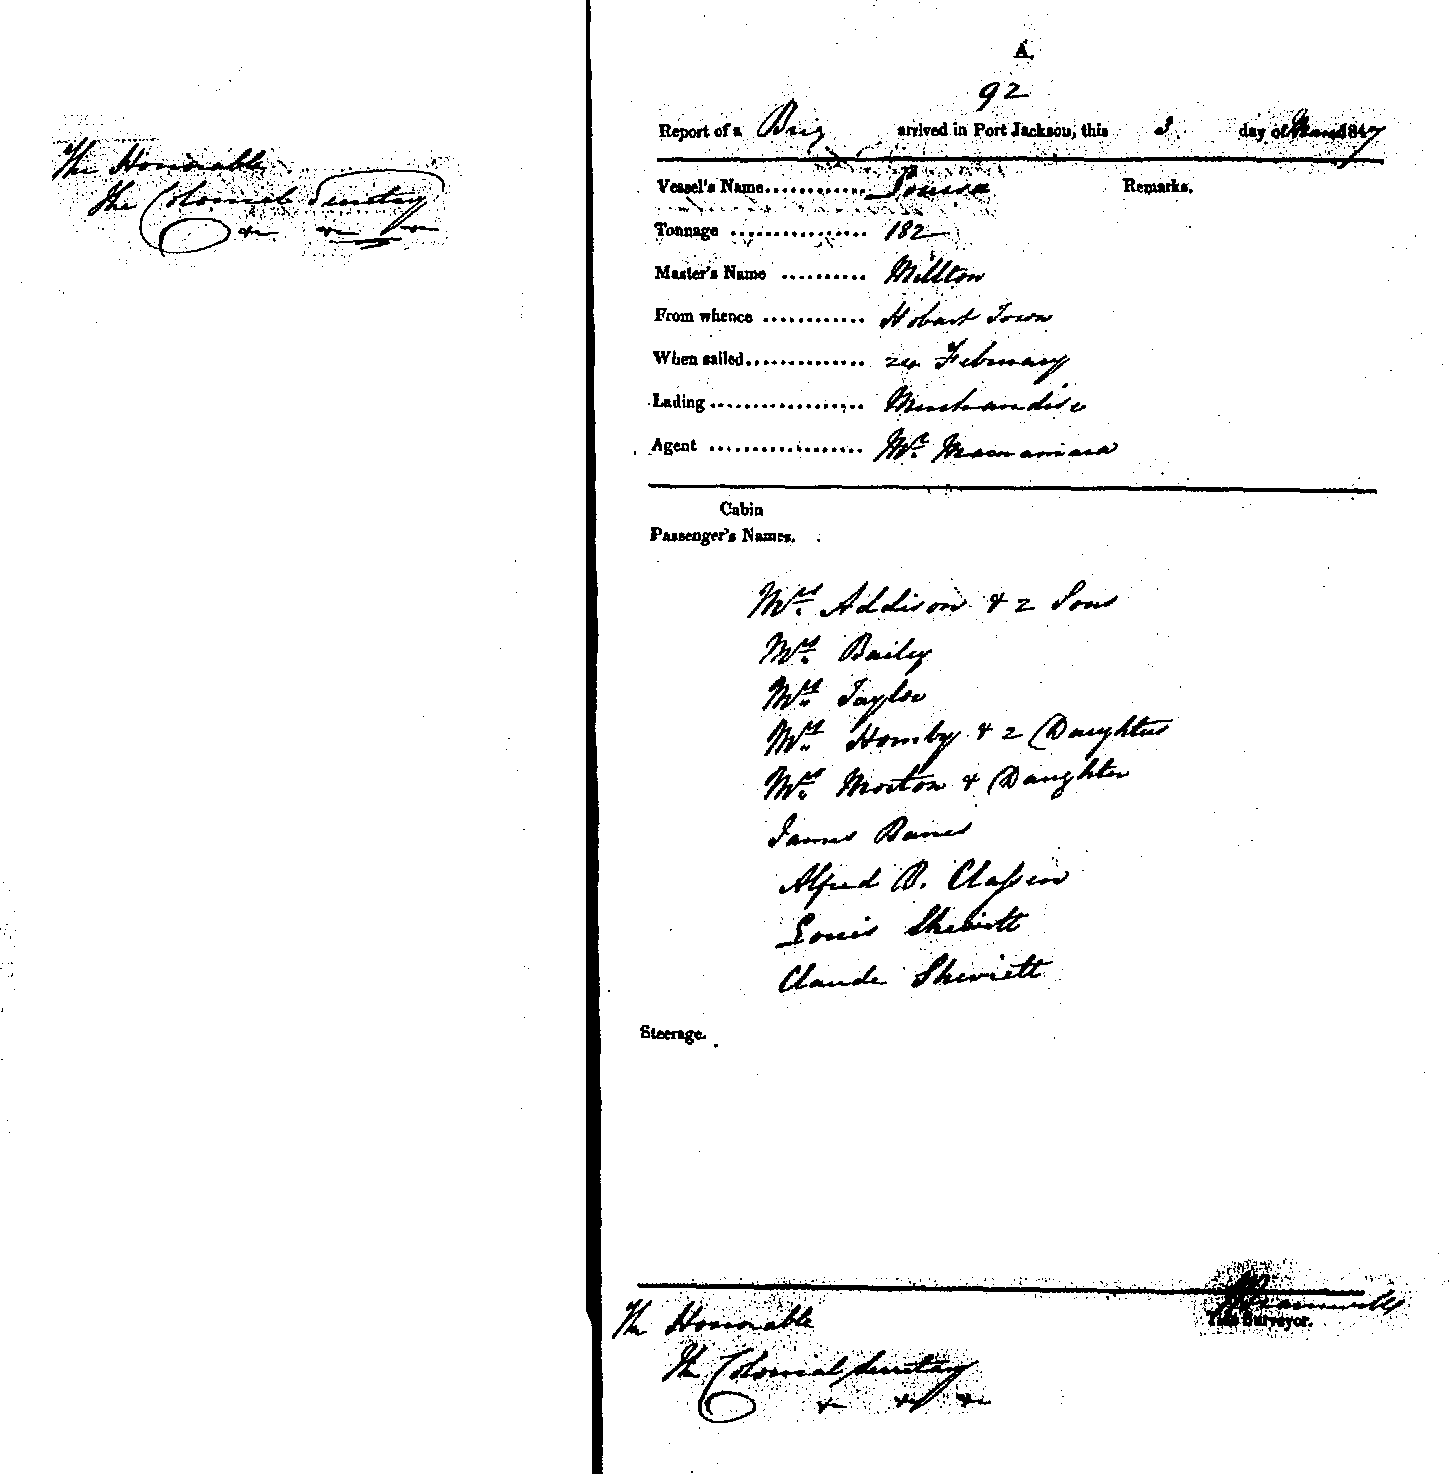 The Honorable
The Colonial Secretary
&c &c &c
A.
92
Report of a Brig arrived in Port Jackson, this 3 day of March 1847
Vessel's Name............ Louisa Remarks.
Tonnage ................ 182
Master's Name .......... Millton
From whence ............ Hobart Town
When sailed.............. 24 February
Lading .................. Merchandise
Agent .................. Mr. Macnamara
Cabin
Passenger's Names.
Mrs. Addison & 2 Sons
Mrs. Bailey
Mrs. Taylor
Mrs. Hornby & 2 Daughters
Mrs. Morton & Daughter
James
Alfred B. Classen
Louis
Claude
Steerage.
Tide Surveyor.
The Honorable
The Colonial Secretary
&c &c &c